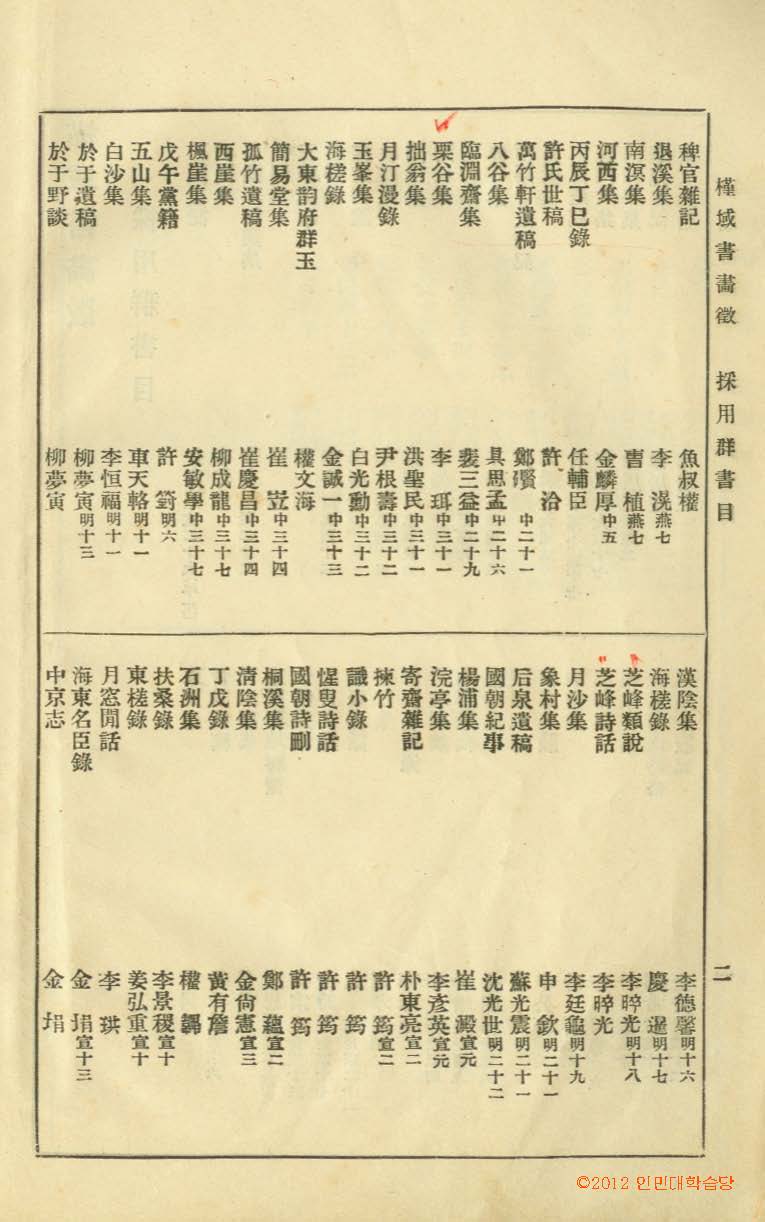 槿域書畵徵 採用群書目 二
稗官雜記 魚叔權
退溪集 李滉燕七
南溟集 曺植燕七
河西集 金麟厚中五
丙辰丁巳錄 任輔臣
許氏世稿 許洽
萬竹軒遺稿 鄭 中二十一
八谷集 具思孟中二十六
臨淵齋集 裵三益中二十九
栗谷集 李珥中三十一
拙翁集 洪聖民中三十一
月汀漫錄 尹根壽中三十二
玉峯集 白光勳中三十二
海槎錄 金誠一中三十三
大東韵府群玉 權文海
簡易堂集 崔岦中三十四
孤竹遺稿 崔慶昌中三十四
西崖集 柳成龍中三十七
楓崖集 安敏學中三十七
戊午黨籍 許篈明六
五山集 車天輅明十一
白沙集 李恒福明十一
於于遺稿 柳夢寅明十三
於于野談 柳夢寅
漢陰集 李德馨明十六
海槎錄 慶暹明十七
芝峰類說 李睟光明十八
芝峰詩話 李睟光
月沙集 李廷龜明十九
象村集 申欽明二十一
后泉遺稿 蘇光震明二十一
國朝紀事 沈光世明二十二
楊浦集 崔澱宣元
浣亭集 李彥英宣元
寄齋雜記 朴東亮宣二
揀竹 許筠宣二
識小錄 許筠
惺叟詩話 許筠
國朝詩刪 許筠
桐溪集 鄭蘊宣二
淸陰集 金尙憲宣三
丁戊錄 黃有詹
石洲集 權韠
扶桑錄 李景稷宣十
東槎錄 姜弘重宣十
月窓閒話 李珙
海東名臣錄 金堉宣十三
中京志 金堉
©2012 인민대학습당